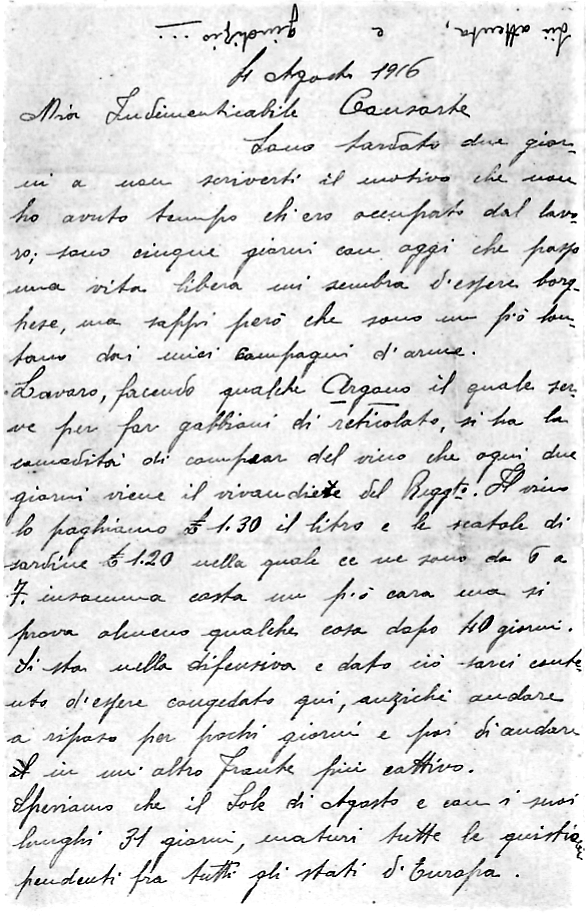 più attenta, e giudizio ...
4 Agosto 1916
Mia Indimenticabile Consorte
Sono tardato due gior-
ni a non scriverti il motivo che non
ho avuto tempo ch'ero occupato dal lavo-
ro; sono cinque giorni con oggi che passo
una vita libera mi sembra d'essere borg-
hese, ma sappi però che sono un pió lon-
tano dai miei compagni d'arme.
Lavoro, facendo qualche Argano il quale ser-
ve per far gabbioni di reticolato, si ha la
comodità di comprar del vino che ogni due
giorni viene il vivandiere del Reggto. Il vino
lo paghiamo £ 1.30 il litro e le scatole di
sardine £ 1.20 nella quale ce ne sono da 6 a
7. insomma costa un pió cara ma si
prova almeno qualche cosa dopo 40 giorni.
Si sta nella difensiva e dato ciò sarei conte-
nto d'essere congedato qui, anziché andare
a riposo per pochi giorni e poi di andare
in un'altro fronte più cattivo.
Speriamo che il Sole di Agosto e con i suoi
lunghi 31 giorni, maturi tutte le quistioni
pendenti fra tutti gli stati d'Europa.